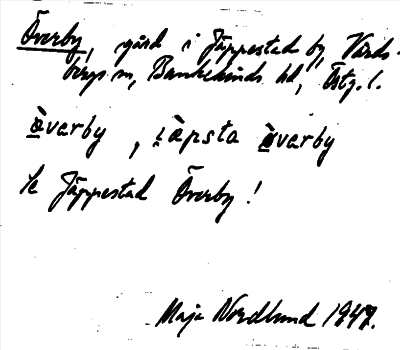 Överby, gård i Jäppestad by, Vårds-
bergs sn, Bankekinds hd, Östg. l.
ə̀varby, i̯æ̀psta ə̀varby
Se Jäppestad Överby!
Maja Nordlund 1947.